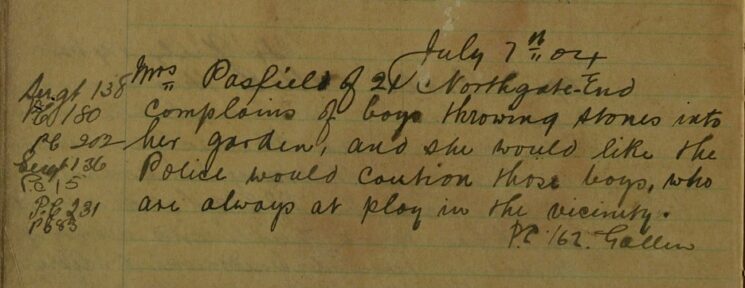 July 7th 04
Mrs Pasfield of 24 Northgate-End
Complains of boys throwing stones into
her garden, and she would like the
Police would caution those boys, who
are always at play in the vicinity.
P.C 162. Gallin
Sergt 138
PC 180
PC 202
Sergt 136
P.C 15
P.C 231
PC 83